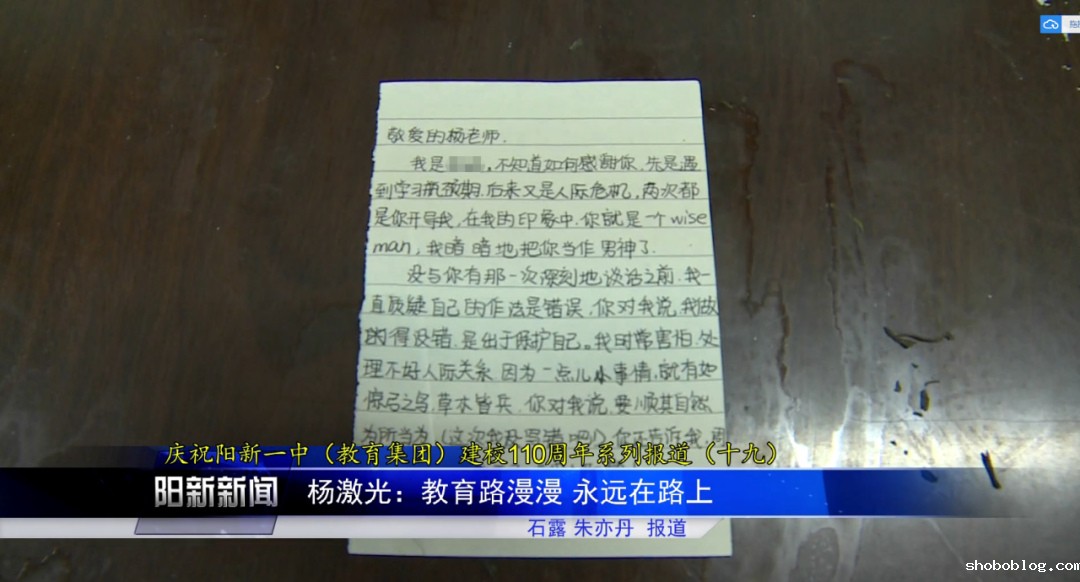 敬爱的杨老师.
我是，不知道如何感谢你.先是遇
到学习瓶颈期.后来又是人际危机，两次都
是你开导我，在我的印象中.你就是一个wise
man，我暗暗地把你当作男神了.
没与你有那一次深刻地谈话之前.我一
直质疑自己的作法是错误.你对我说，我做
的得没错.是出于保护自己。我时常害怕.处
理不好人际关系.因为一点儿小事情.就有如
惊弓之鸟，草木皆兵.你对我说，要顺其自然
为所当为（这次我没写错吧）你不告诉我
庆祝阳新一中（教育集团）建校110周年系列报道（十九）
阳新新闻
杨激光：教育路漫漫 永远在路上
石露 朱亦丹 报道
shoboblog.com